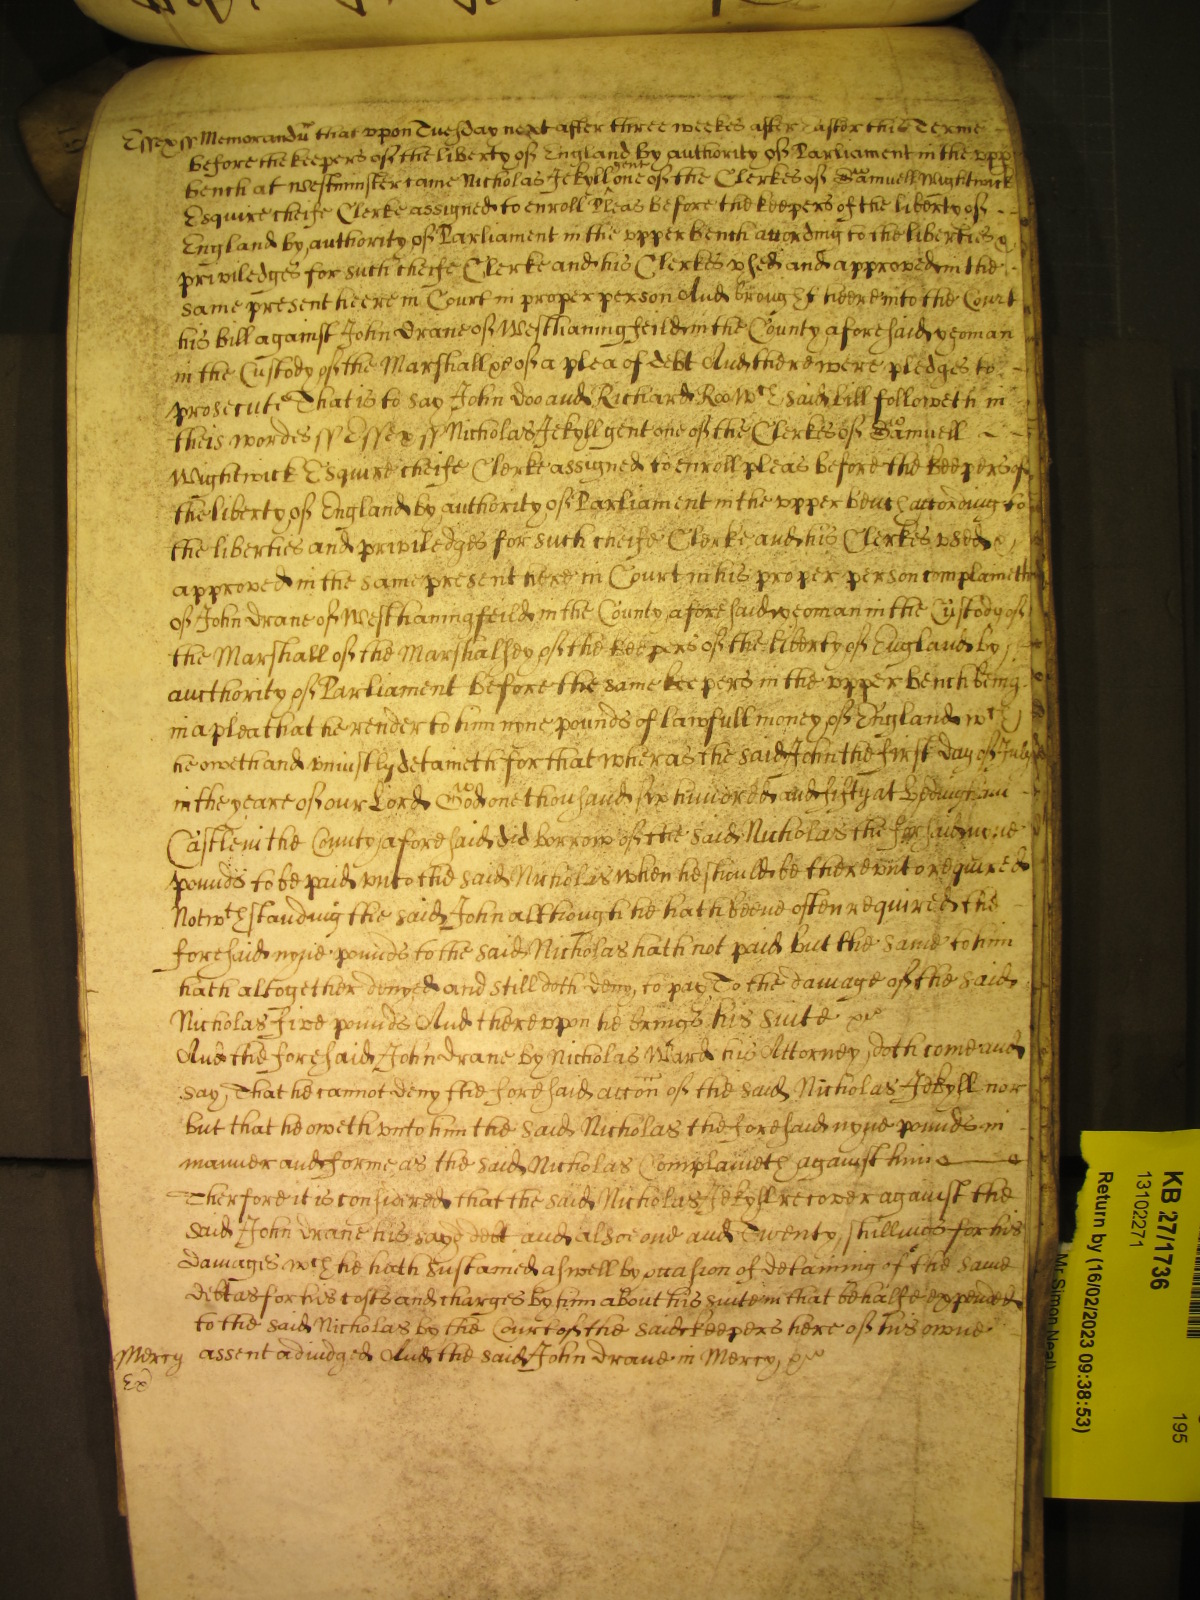 Essex ss Memorandũ that vpon Tuesday next after three weekes after Easter this Terme
before the keepers of the liberty of England by authority of Parliament in the vpp
bench at Westminster came Nicholas Jekyll gent one of the Clerkes of Samuell Wightwick
Esquire cheife Clerke assigned to enroll Pleas before the keepers of the liberty of
England by authority of Parliament in the vpper bench according to the liberties &
priviledges for such cheife Clerke and his Clerkes vsed and approved in the
same present heere in Court in proper person And brought heere into the Court
his bill against John Drane of Westhaningfeild in the County aforesaid yeoman
in the Custody of the Marshall &c of a plea of debt And there were pledges to
prosecute That is to say John Doo and Richard Roo Wch said bill followeth in
theis wordes ss Essex ss Nicholas Jekyll gent one of the Clerkes of Samuell
Wightwick Esquire cheife Clerke assigned to enroll pleas before the keepers of
the liberty of England by authority of Parliament in the vpper bench according to
the liberties and priviledges for such cheife Clerke and his Clerkes vsed &
approved in the same present here in Court in his proper person complaineth
of John Drane of Westhaningfeild in the County aforesaid yeoman in the Custody of
the Marshall of the Marshalsey of the keepers of the liberty of England by
aucthority of Parliament before the same keepers in the vpper bench being
in a plea that he render to him nyne pounds of lawfull money of England wch
he oweth and vniustly detaineth for that wheras the said John the first day of July
in the yeare of our Lord God one thousand six hundred and fifty at Hedingham
Castle in the County aforesaid did borrow of the said Nicholas the forsaid nyne
pounds to be paid vnto the said Nicholas when he should be therevnto required
Notwthstanding the said John although he hath beene often required the
foresaid nyne pounds to the said Nicholas hath not paid but the same to him
hath altogether denyed and still doth deny to pay To the damage of the said
Nicholas five pounds And therevpon he brings his suite &c
And the foresaid John Drane by Nicholas Ward his Attorney doth come and
say That he cannot deny the foresaid accõn of the said Nicholas Jekyll nor
but that he oweth vnto him the said Nicholas the foresaid nyne pounds in
manner and forme as the said Nicholas Complaineth against him
Therfore it is considered that the said Nicholas Jekyll recover against the
said John Drane his sayd debt and alsoe one and Twenty shillings for his
damages wch he hath sustained aswell by occasion of detaining of the same
debt as for his costs and charges by him about his suite in that behalfe expended
to the said Nicholas by the Court of the said keepers here of his owne
Mercy assent adiudged And the said John Drane in Mercy, &c
Ex
KB 27/1736
13102271
195
Return by (16/02/2023 09:38:53)
Mr Simon Neal